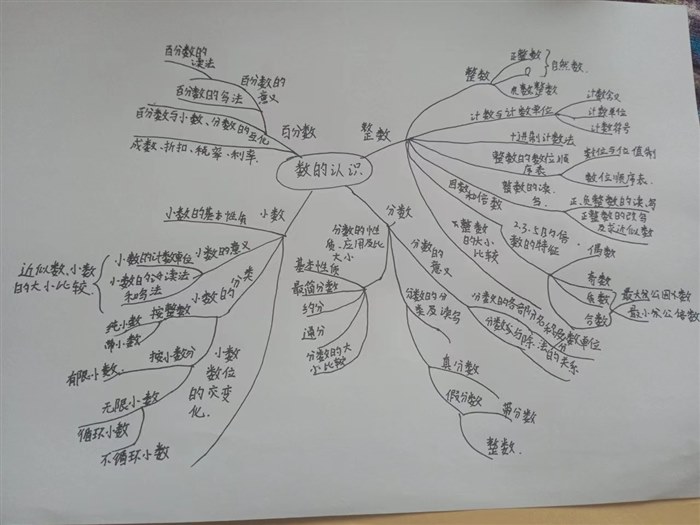 数的认识
百分数
百分数的
意义
百分数的
读法
百分数的写法
百分数与小数、分数的互化
成数、折扣、税率、利率.
整数
整数
正整数
0
自然数.
负整数
计数与计数单位
计数含义
计数单位
计数符号
十进制计数法
整数的数位顺
序表
数位与位值制
数位顺序表.
整数的读、
写.
正、负整数的读、写
正整数的改写
及求近似数
正整数
的大小
比较
因数
和倍数
2·3·5的倍
数的特征
偶数
奇数
质数
合数
最大公因数
最小公倍数
小数
小数的基本性质
小数的意义
小数的计数单位
小数的读法
和写法
近似数、小数
的大小比较.
小数的分类
按整数
纯小数
带小数
按小数分
有限小数
无限小数
循环小数
不循环小数
小数
数位
的变
化.
分数
分数的性
质、应用及比
大小
基本性质
最简分数
约分
通分
分数的大
小比较
分数的
意义
分数的各部分名称
分数单位
分数与除法
的关系
分数的分
类及读写
真分数
假分数
带分数
整数.